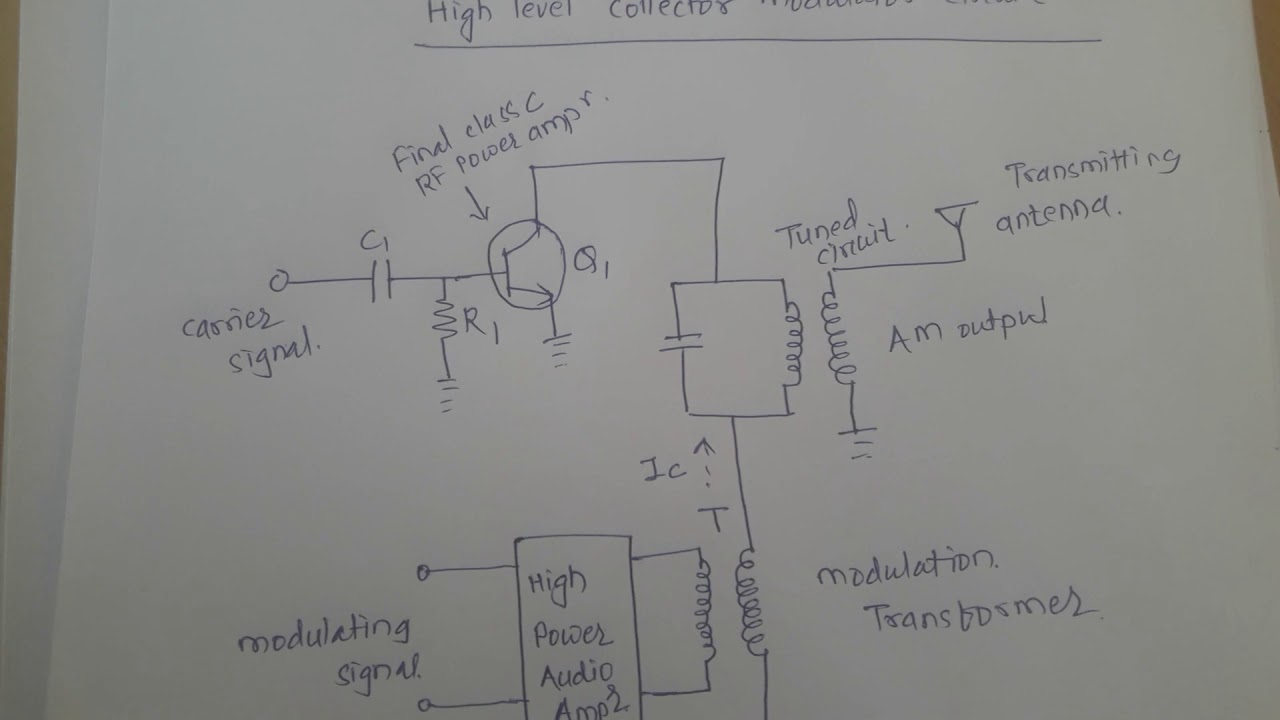 High level Collector
Final class C
RF power ampr.
Transmitting
antenna.
Tuned
circuit.
C1
Q1
R1
carrier
signal.
AM output
Ic
T
modulation.
Transformer.
High
Power
Audio
Ampr
modulating
signal.